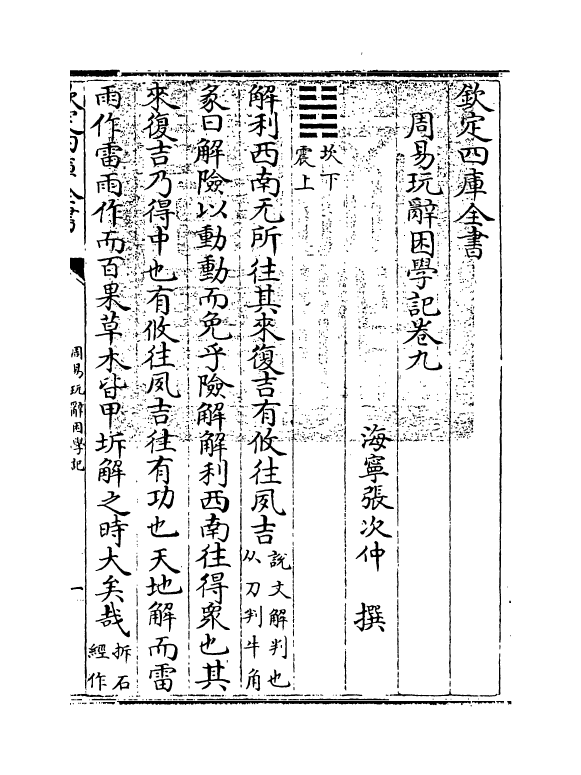 欽定四庫全書
周易玩辭困學記卷九
海寧張次仲　撰
坎下
震上
解利西南无所往其來復吉有攸往夙吉說文解判也
从刀判牛角
彖曰解險以動動而免乎險解解利西南往得衆也其
來復吉乃得中也有攸往夙吉往有功也天地解而雷
雨作雷雨作而百果草木皆甲坼解之時大矣哉拆石
經作
欽定四庫全書
周易玩辭困學記
一